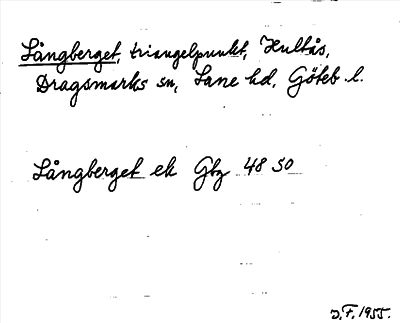 Långberget, triangelpunkt, Hultås,
Dragsmarks sn, Lane hd, Göteb. l.
Långberget ek Gbg 48 50
J.F. 1955.